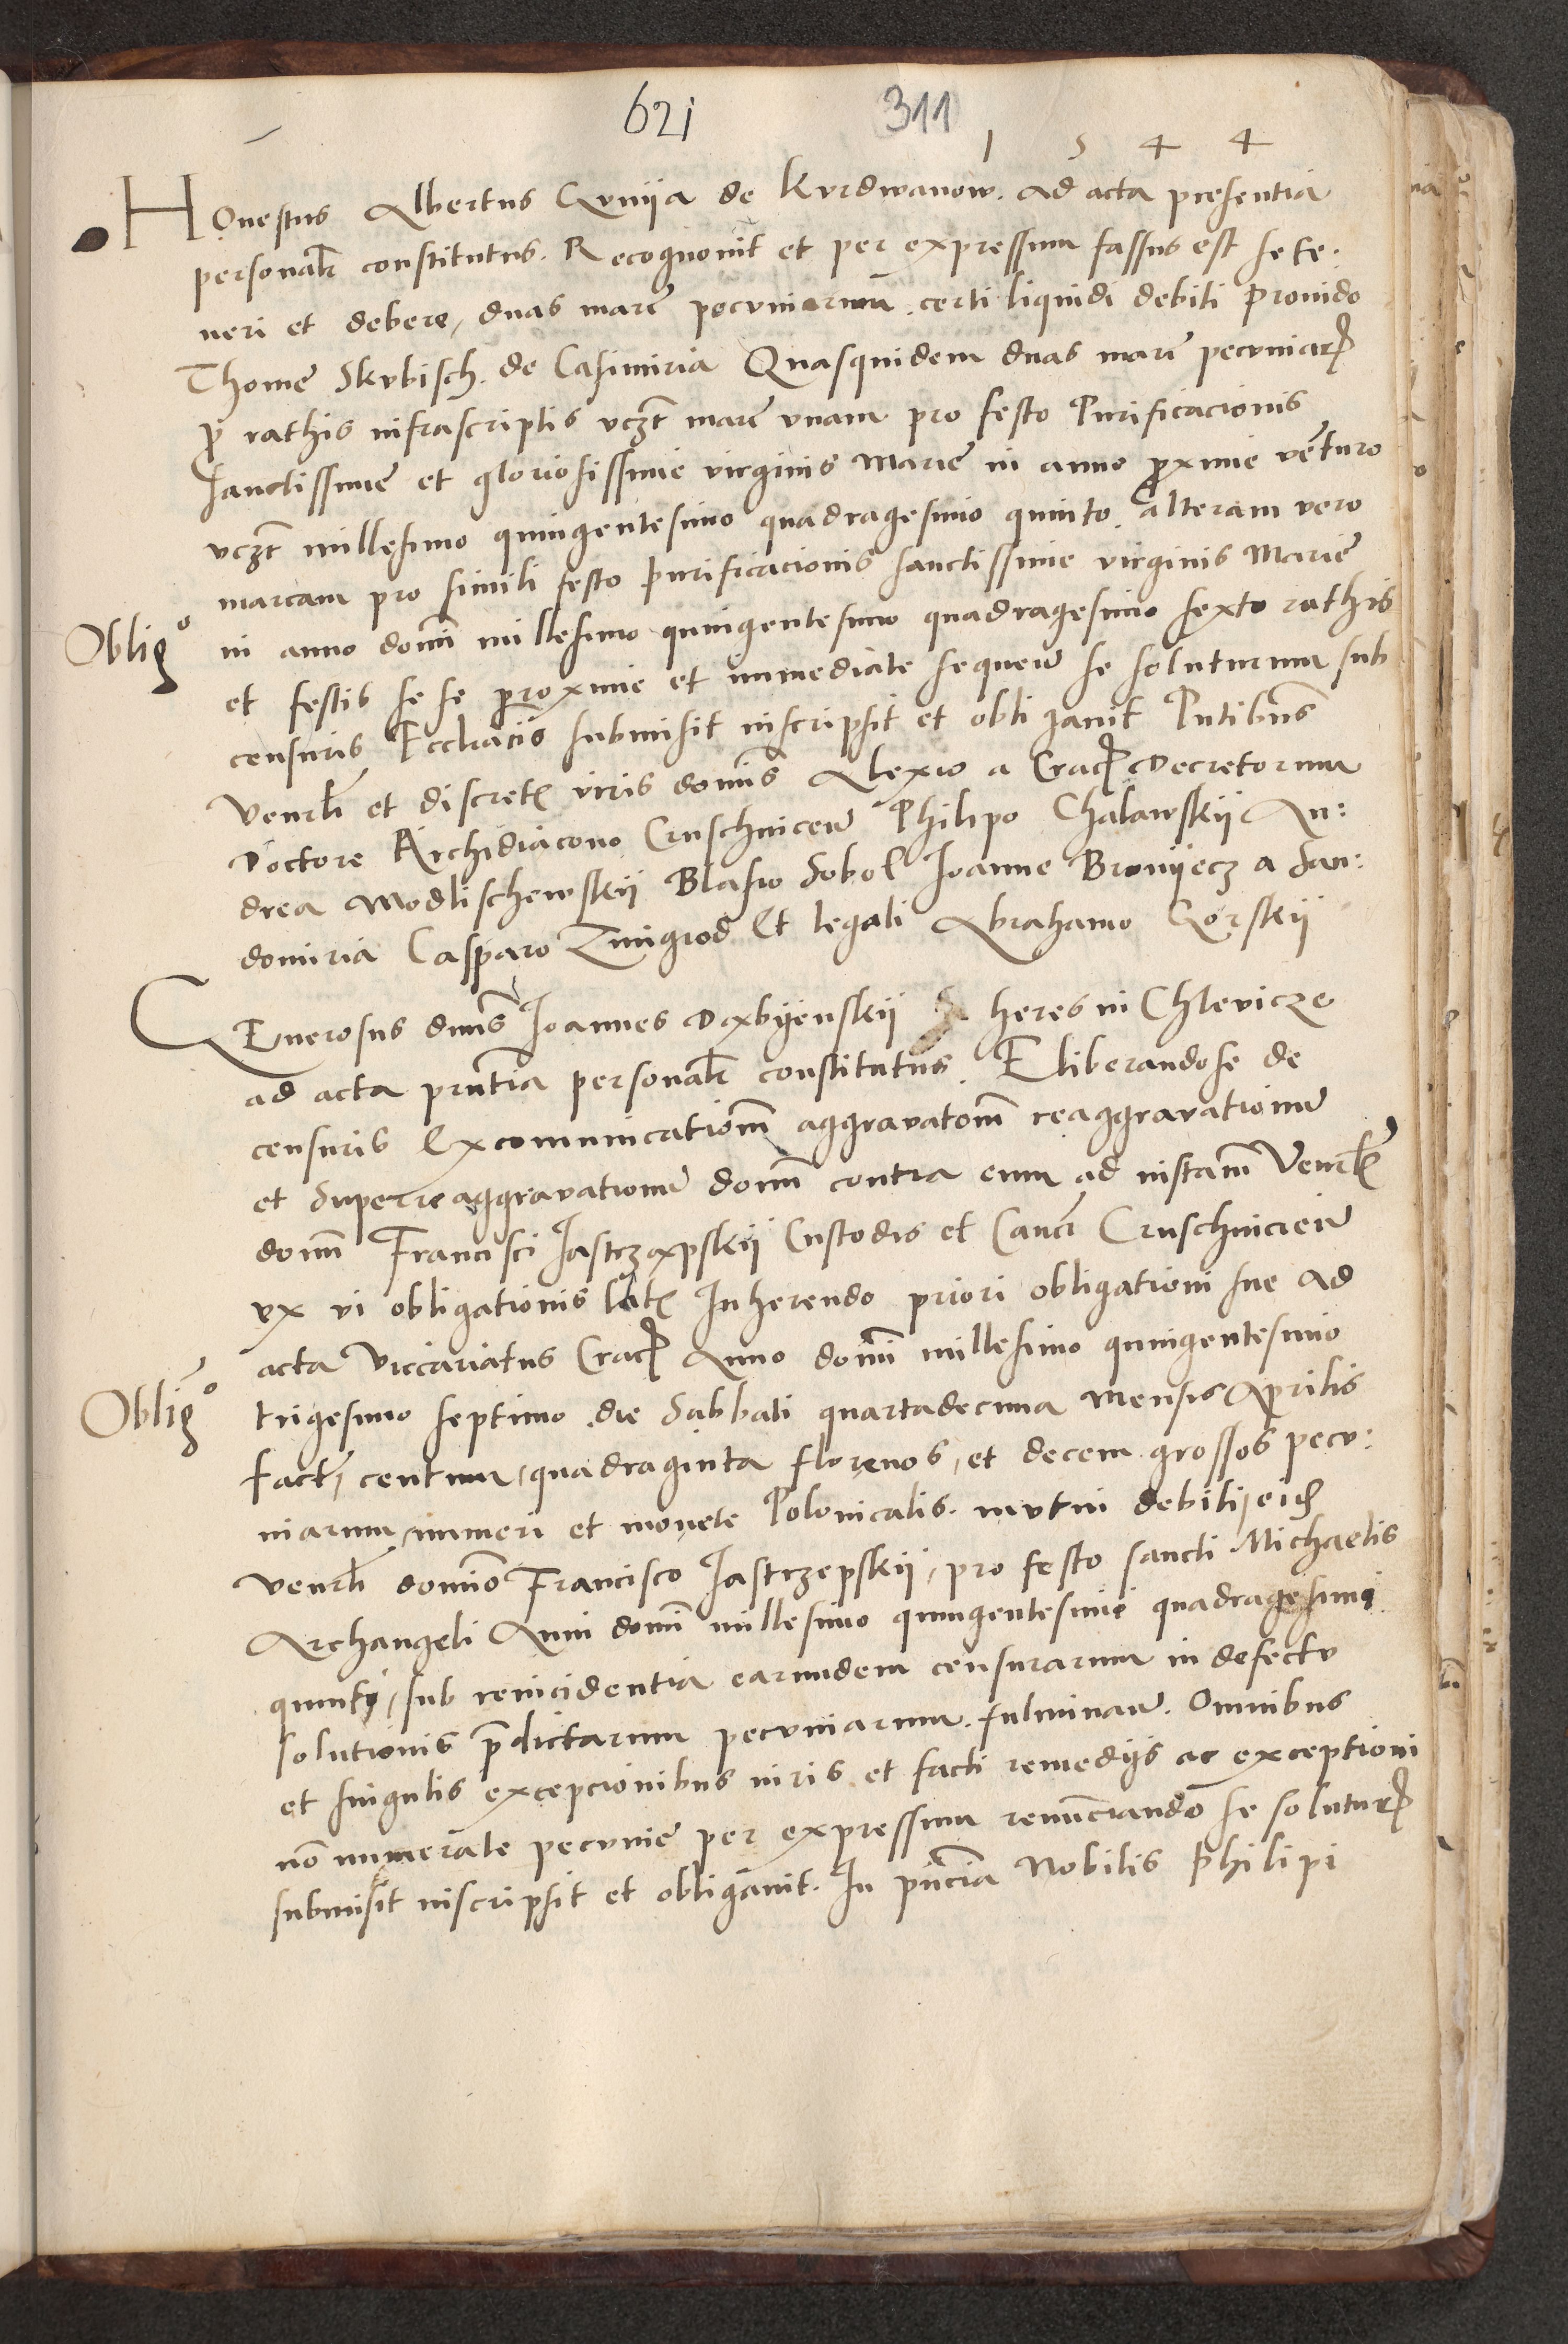 621 311
1 5 4 4
HOnestus Albertus Gvnija de Kvrdwanow. ad acta presentia
personalr constitutus. Recognouit et per expressum fassus est se te:
neri et debere, duas marc pecvniarum. certi liquidi debiti Prouido
Thome Skvbisch. de Casimiria Quasquidem duas marc pecvniar
p rathis infrascriptis vczt marc vnam pro festo Purificacionis
sanctissime et gloriosissime virginis Marie in anno proxime venturo
vczt millesimo quingentesimo quadragesimo quinto. alteram vero
marcam pro simili festo purificacionis sanctissime virginis Marie
Obligo
in anno domi millesimo quingentesimo quadragesimo sexto rathis
et festis se se proxime et immediate sequen se soluturum sub
censuris Eccliacis submisit inscripsit et obligauit Pntibus
Venrli et discret viris domis Alexio a Crac Decretorum
Doctore Archidiacono Cruschuicen Philipo Chalawskij An:
drea Modlischewskij Blasio Sobol Joanne Bronijecz a San:
domiria Casparo Zmigrod Et legali Abrahamo Gorskij
GEnerosus dnus Joannes Dxbijenskij heres in Chlevicze
ad acta prntia personalr constitutus. Eliberando se de
censuris Excomunicationum aggravatom reaggravationum
et Superreaggravationum domi contra eum ad instam Venrl
domi Francisci Jastrzxpskij Custodis et Canci Cruschuicien
vx vi obligationis lat Inherendo priori obligationi sue ad
acta Viccariatus Crac Anno domi millesimo quingentesimo
Obligo
trigesimo septimo die Sabbati quartadecima mensis Aprilis
fact, centum, quadraginta florenos, et decem grossos pecv:
niarum, numeri et monete Polonicalis. mvtui debiti, eid
Venrli domino Francisco Jastrzepskij, pro festo sancti Michaelis
Archangeli Anni domi millesimo quingentesimi quadragesimi
quinti, sub reincidentia earundem censurarum in defectv
solutionis predictarum pecvniarum. fulminan. Omnibus
et singulis excepcionibus iuris et facti remedijs ac exceptioni
no numerate pecvnie per expressum renunciando se solutur
submisit inscripsit et obligauit. In pncia Nobilis Philipi